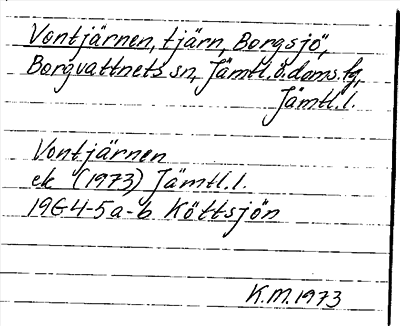 Vontjärnen, tjärn, Borgsjö,
Borgvattnets sn, Jämtl.ö.doms.fg,
Jämtl.l.
Vontjärnen
ek (1973) Jämtl.l.
19G4-5a-b Köttsjön
K.M.1973